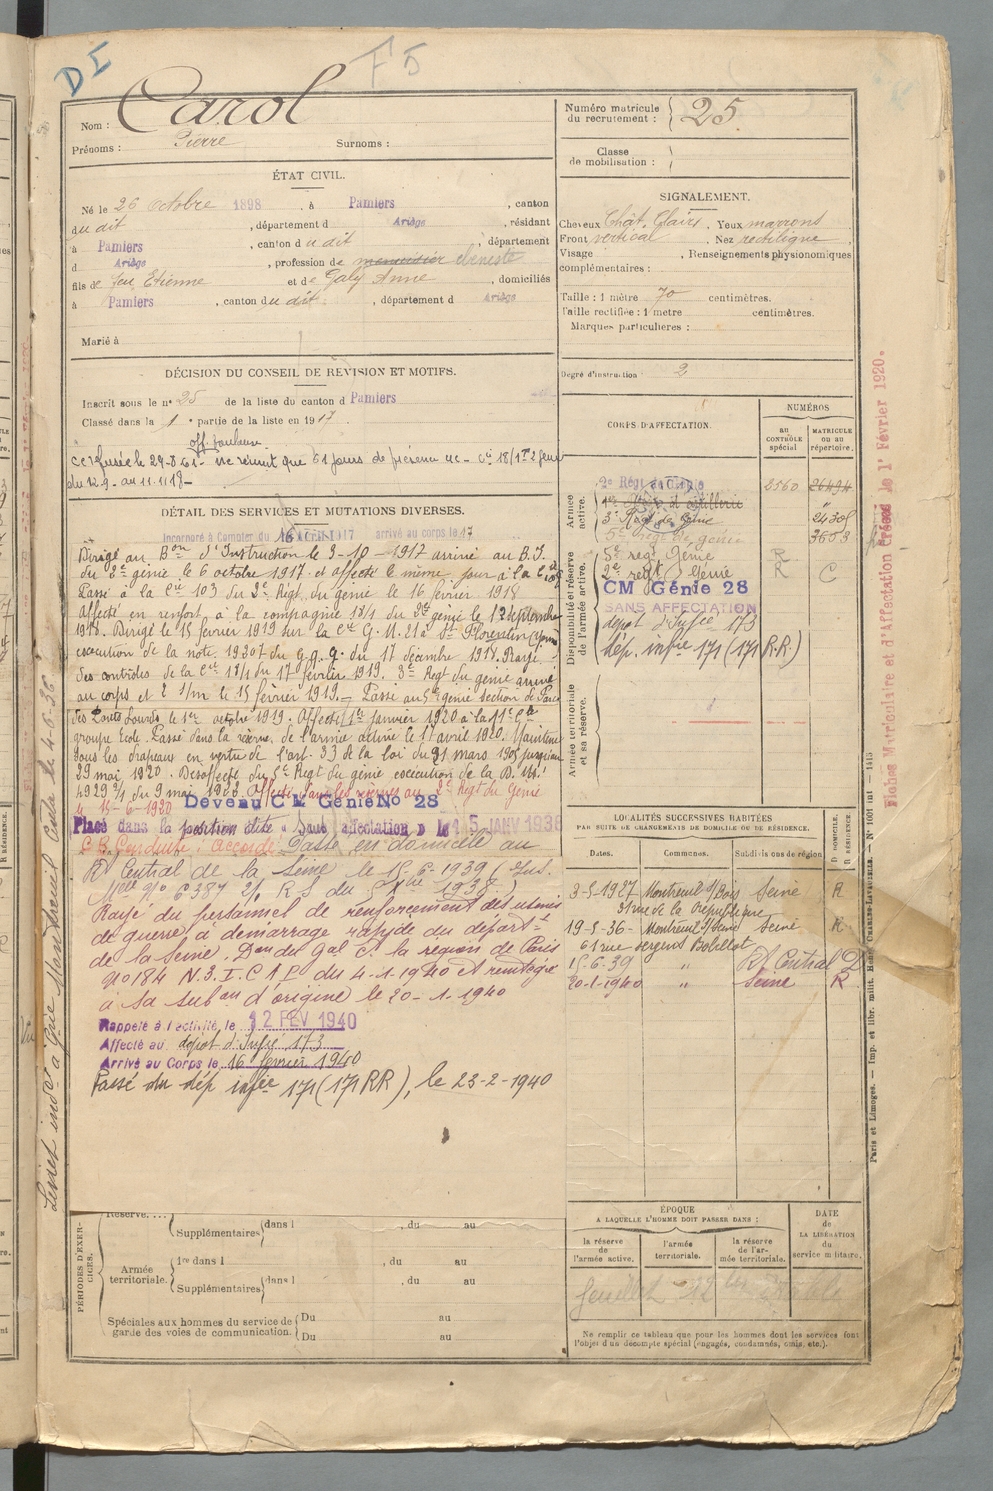 DI
F5
Nom : Carol
Prénoms : Pierre Surnoms :
Numéro matricule du recrutement : 25
Classe de mobilisation :
ÉTAT CIVIL.
Né le 26 Octobre 1898, à Pamiers, canton
du dit, département d Ariège, résidant
à Pamiers, canton du dit, département
d Ariège, profession de menuisier ebeniste
fils de feu Etienne et de Galy Anne, domiciliés
à Pamiers, canton du dit, département d Ariège
Marié à
SIGNALEMENT.
Cheveux Chât. Clairs. Yeux marrons
Front vertical, Nez rectiligne,
Visage , Renseignements physionomiques
complémentaires :
Taille : 1 mètre 70 centimètres.
Taille rectifiée : 1 mètre centimètres.
Marques particulières :
Degré d'instruction 2
DÉCISION DU CONSEIL DE RÉVISION ET MOTIFS.
Inscrit sous le n° 25 de la liste du canton d Pamiers
Classé dans la 1 e partie de la liste en 1917
off. Toulouse
ne réunit que 61 jours de présence
du 12.9. au 11.11.18-
DÉTAIL DES SERVICES ET MUTATIONS DIVERSES.
Incorporé à compter du 16 Avril 1917 arrivé au corps le 17
Dirigé au Bon d'Instruction le 3-10-1917 arrivé au B.I.
du 2e génie le 6 octobre 1917 et affecté le même jour à la Cie
Passé à la Cie 103 du 2e Régt du génie le 16 février 1918
Affecté en renfort à la compagnie 18/1 du 2e génie le 12 septembre
1918. Dirigé le 15 février 1919 sur la Cie G.M. 21 à St Florentin (Yonne)
exécution de la note 19307 du G.Q.G. du 17 décembre 1918. Rayé
des contrôles de la Cie 18/1 du 17 février 1919. 3e Régt du génie arrivé
au corps et 2 1/m le 15 février 1919. Passé au 5e génie section de Paris
le 1er octobre 1919. Affecté 1er janvier 1920 à la 11e Cie
groupe Ecole. Passé dans la réserve de l'armée active le 15 avril 1920. Maintenu
sous les drapeaux en vertu de l'art. 33 de la loi du 21 mars 1905 jusqu'au
29 mai 1920. Désaffecté du 5e Régt du génie exécution de la D. M.
4929 3/4 du 9 mai 1923. Affecté dans les réserves au 2e Régt du Génie
le 15-6-1930 Devenu C M Génie No 28
Placé dans la position dite « Sans affectation » le 15 JANV 1938
C.B. Conduite : Accordé. Passé en domicile au
Rt Central de la Seine le 15-6-1939 (Ins.
Mlle n° 6387 2/. R S du 5 Xbre 1938.)
Rayé du personnel de renforcement des usines
de guerre à démarrage rapide du départt
de la Seine. Don du Gal Ct la région de Paris
n° 184 N.3.I.C.A.P. du 4-1-1940 et réintégré
à sa subon d'origine le 20-1-1940
Rappelé à l'activité le 12 FEV 1940
Affecté au dépôt d'Infie 173
Arrivé au Corps le 16 février 1940
Passé du dép infie 171 (171 RR), le 23-2-1940
CORPS D'AFFECTATION.
NUMÉROS
au CONTRÔLE spécial
MATRICULE ou au répertoire.
Armée active.
2e Régt de Génie 2560 26494
1er Régt d'artillerie "
3e Régt de Génie 24308
5e Régt de génie 3653
Disponibilité et réserve de l'armée active.
5e régt Génie R
2e régt Génie R C
CM Génie 28
SANS AFFECTATION
dépôt d'Infie 173
dép. infie 171 (171 R.R.)
Armée territoriale et sa réserve.
LOCALITÉS SUCCESSIVES HABITÉES
PAR SUITE DE CHANGEMENTS DE DOMICILE OU DE RÉSIDENCE.
Dates. Communes. Subdivisions de région D DOMICILE. R RÉSIDENCE.
3-5-1927 Montreuil s/Bois Seine R
31 rue de la République
19-5-36- Montreuil s/Bois Seine R
61 rue Sergent Bobillot
15-6-39 " Rt Central D
20-1-1940 " Seine R
PÉRIODES D'EXERCICES.
Réserve....
Supplémentaires dans l , du au
Armée territoriale.
1re dans l , du au
Supplémentaires dans l , du au
Spéciales aux hommes du service de garde des voies de communication.
Du au
Du au
ÉPOQUE
A LAQUELLE L'HOMME DOIT PASSER DANS :
la réserve de l'armée active.
l'armée territoriale.
la réserve de l'armée territoriale.
DATE de LA LIBÉRATION du service militaire.
feuillet
Ne remplir ce tableau que pour les hommes dont les services font
l'objet d'un décompte spécial (engagés, condamnés, omis, etc.).
Fiches Matriculaire et d'Affectation Créées le 1er Février 1920.
Paris et Limoges. — Imp. et libr. milit. Henri CHARLES-LAVAUZELLE. — N° 1007 int — 1915